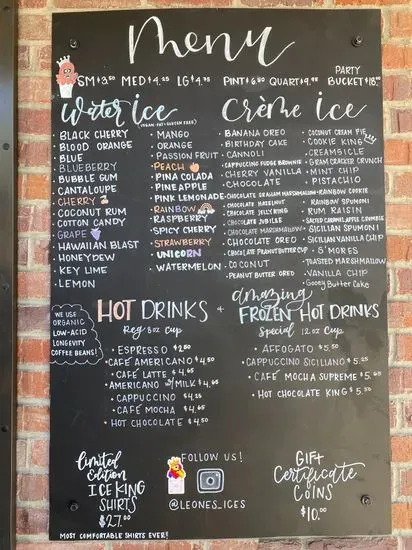 Menu
SM $3.50 MED $4.25 LG $4.75 PINT $6.50 QUART $9.95 PARTY BUCKET $18.00
Water ice
(VEGAN · FAT + GLUTEN FREE)
· BLACK CHERRY
· BLOOD ORANGE
· BLUE
· BLUEBERRY
· BUBBLE GUM
· CANTALOUPE
· CHERRY
· COCONUT RUM
· COTTON CANDY
· GRAPE
· HAWAIIAN BLAST
· HONEYDEW
· KEY LIME
· LEMON
· MANGO
· ORANGE
· PASSION FRUIT
· PEACH
· PINA COLADA
· PINEAPPLE
· PINK LEMONADE
· RAINBOW
· RASPBERRY
· SPICY CHERRY
· STRAWBERRY
· UNICORN
· WATERMELON
Crème ice
· BANANA OREO
· BIRTHDAY CAKE
· CANNOLI
· CAPPUCCINO FUDGE BROWNIE
· CHERRY VANILLA
· CHOCOLATE
· CHOCOLATE GRAHAM MARSHMALLOW
· CHOCOLATE HAZELNUT
· CHOCOLATE JELLY RING
· CHOCOLATE JUBILEE
· CHOCOLATE MARSHMALLOW
· CHOCOLATE OREO
· CHOCOLATE PEANUT BUTTER CUP
· COCONUT
· PEANUT BUTTER OREO
· COCONUT CREAM PIE
· COOKIE KING
· CREAMSICLE
· GRAM CRACKER CRUNCH
· MINT CHIP
· PISTACHIO
· RAINBOW COOKIE
· RAINBOW SPUMONI
· RUM RAISIN
· SALTED CARAMEL APPLE CRUMBLE
· SICILIAN SPUMONI
· SICILIAN VANILLA CHIP
· S'MORES
· TOASTED MARSHMALLOW
· VANILLA CHIP
· Gooey Butter Cake
WE USE
ORGANIC
LOW-ACID
LONGEVITY
COFFEE BEANS!
HOT DRINKS +
Reg 8oz Cup
· ESPRESSO $2.50
· CAFÉ AMERICANO $4.50
· CAFÉ LATTE $4.65
· AMERICANO w/ MILK $4.65
· CAPPUCCINO $4.25
· CAFÉ MOCHA $4.65
· HOT CHOCOLATE $4.50
amazing
FROZEN HOT DRINKS
Special 12oz Cup
· AFFOGATO $5.50
· CAPPUCCINO SICILIANO $5.25
· CAFÉ MOCHA SUPREME $5.65
· HOT CHOCOLATE KING $5.50
Limited
Edition
ICE KING
SHIRTS
$27.00
MOST COMFORTABLE SHIRTS EVER!
FOLLOW US!
@LEONES_ICES
GIFT
Certificate
COINS
$10.00